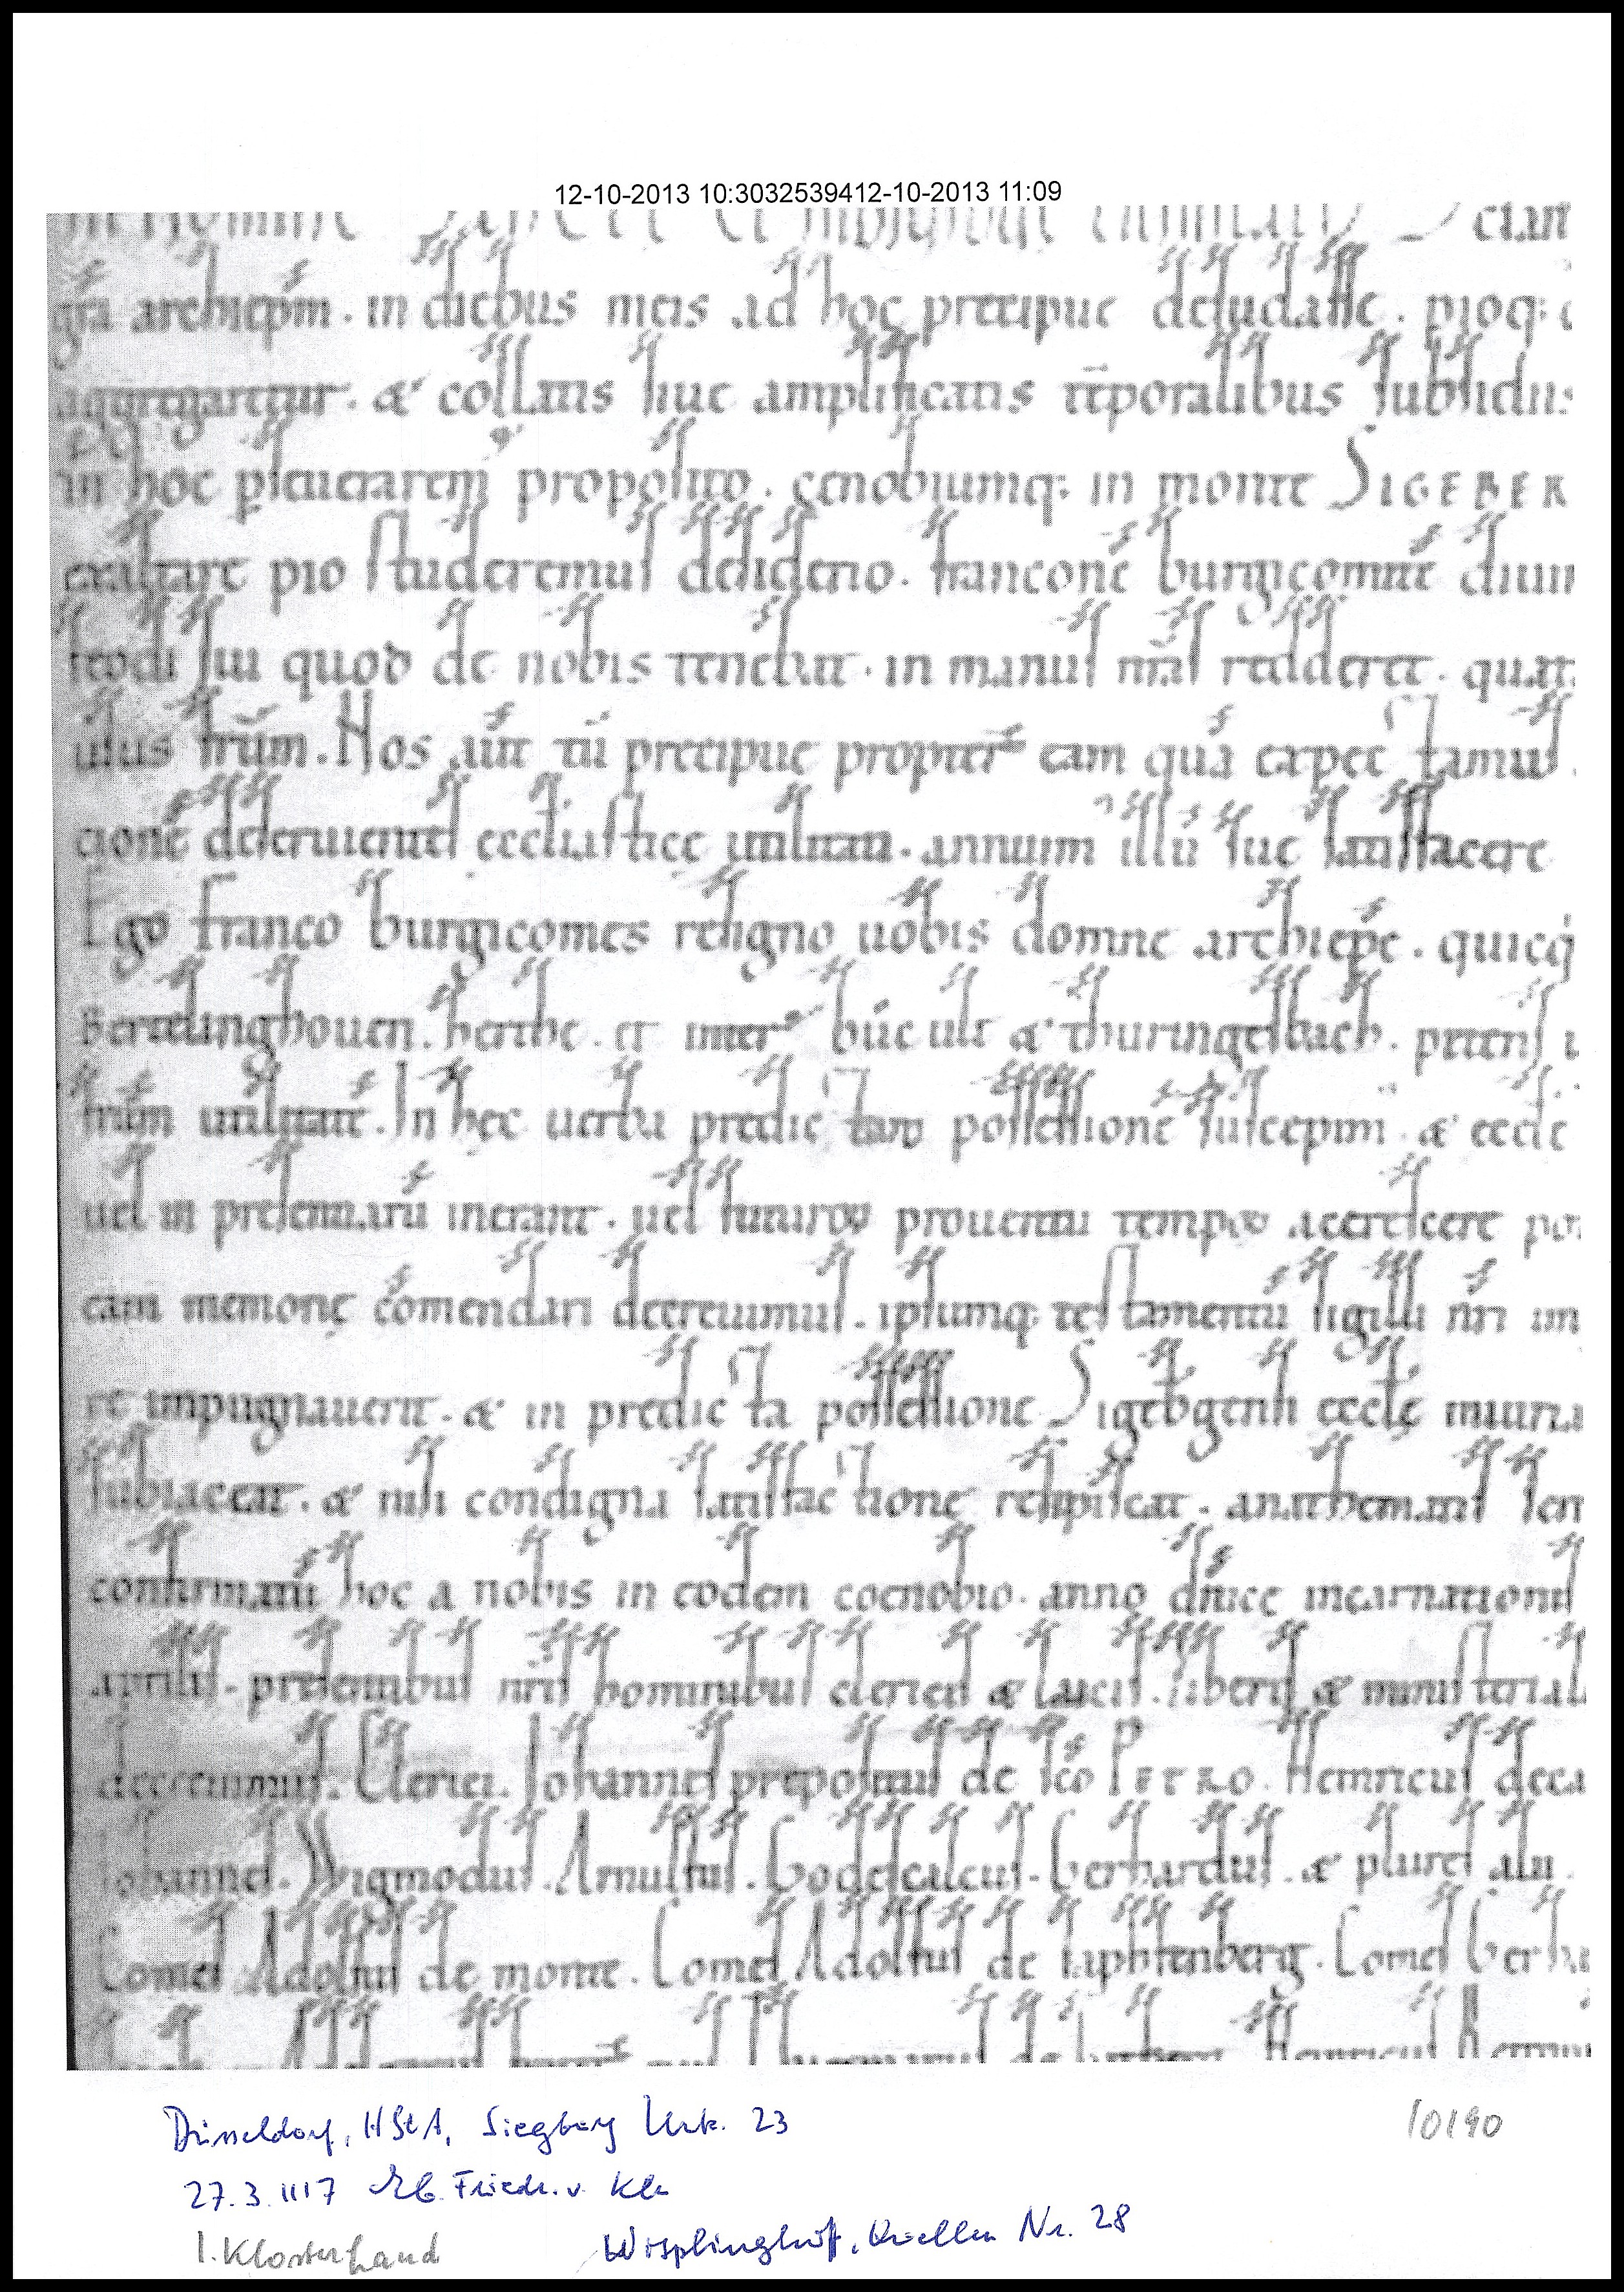 12-10-2013 10:3032539412-10-2013 11:09
In Nomine Sancte et Individue trinitatis Sciant
gr̄a archiep̄m. in diebus meis ad hoc precipue desudasse. pioq;
aggregarentur. & collatis siue amplificatis tēporalibus subsidiis
in hoc p̱seuerarem proposito. cenobiumq; in monte SIGEBER
exaltare pio studeremus desiderio. franconē burgicomitē diuin
feodi sui quod de nobis tenebat. in manus nr̄as redderet. quat
usus fr̄um. Nos aūt tū precipue propter eam quā expectamus.
cionē deseruientes ecclesiasticę utilitati. annuim illū sue satisfacere
Ego franco burgicomes resigno uobis domne archiep̄e. quicq
Bertelinghouen. herthe. et inter búcult & thuringesbach. petens
fr̄um utilitatē. In hęc uerba predictarū possessionē suscepim & eccle
uel in presentiarū inerant. uel futurorū prouentu temporū accrescere po
eam memorię cōmendari decreuimus. ipsumq; testamentū sigilli nr̄i im
re impugnauerit. & in predicta possessione Sigebgensi eccl̄ę iniuria
subiaceat. & nisi condigna satisfactione resipiscat. anathematis sen
confirmatū hoc a nobis in eodem coenobio. anno dn̄icę incarnationis
aprilis. presentibus nr̄is hominibus clericis & laicis. liberis & ministerial
decreuimus. Clerici. Johannes prepositus de sc̄o PETRO. Heinricus deca
Johannes. Wigmodus. Arnulfus. Godescalcus. Gerhardus. & plures alii.
Comes Adolfus de monte. Comes Adolfus de saphfenberg. Comes Gerha
Düsseldorf, HStA, Siegburg Urk. 23
10190
27.3.1117 Eb. Friedr. v. Kln
1. Klosterhand
Wisplinghoff, Quellen Nr. 28